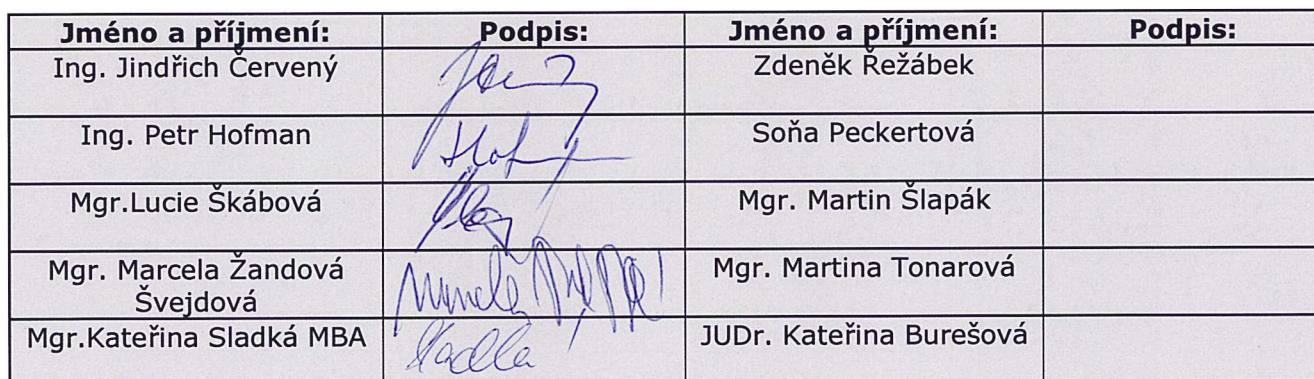 Jméno a příjmení: Podpis: Jméno a příjmení: Podpis:
Ing. Jindřich Červený Zdeněk Řežábek
Ing. Petr Hofman Soňa Peckertová
Mgr.Lucie Škábová Mgr. Martin Šlapák
Mgr. Marcela Žandová Mgr. Martina Tonarová
Švejdová
Mgr.Kateřina Sladká MBA JUDr. Kateřina Burešová